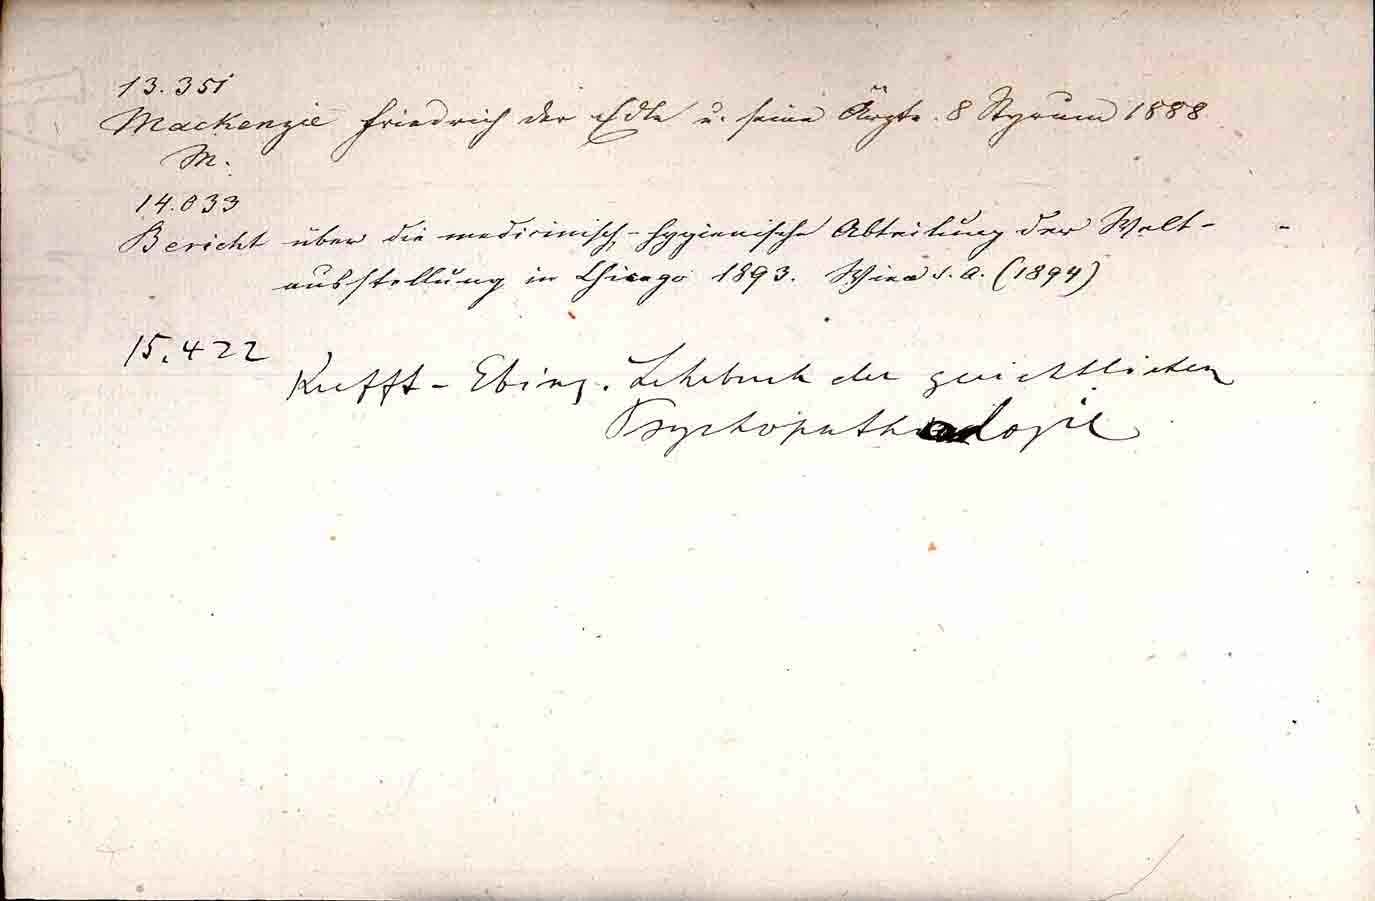 13.351
Mackenzie Friedrich der Edle u. seine Ärzte. 8 Styrum 1888
M.
14.033
Bericht über die medicinisch-hygienische Abteilung der Welt-
ausstellung in Chicago 1893. Wien s. a. (1894)
15.422
Krafft-Ebing. Lehrbuch der gerichtlichen
Psychopathologie